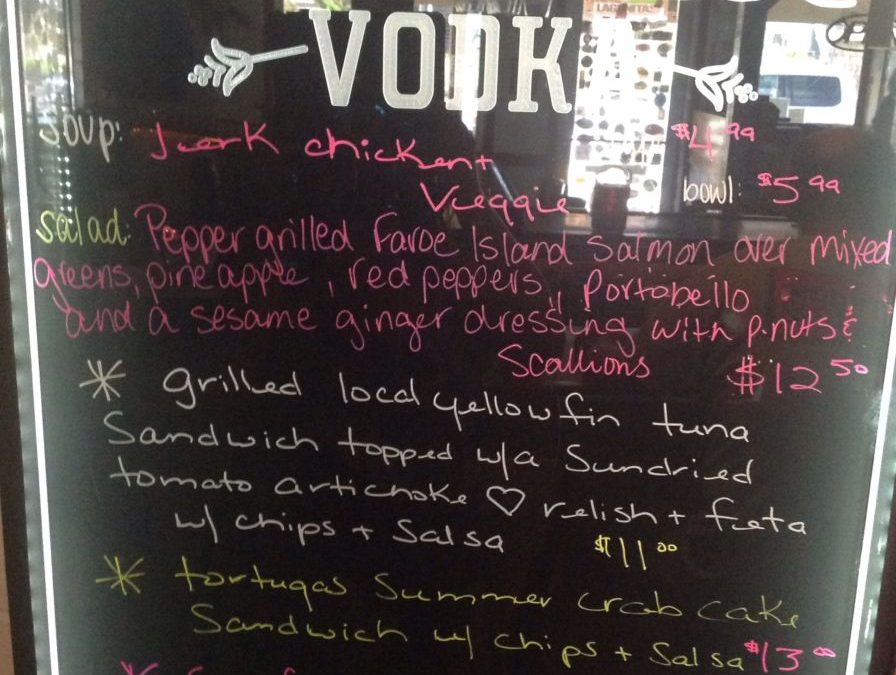 LAGUNITAS
VODKA
soup: Jerk chicken + $4.99
Veggie bowl: $5.99
salad: Pepper grilled Faroe Island salmon over mixed
greens, pineapple, red peppers, portabello
and a sesame ginger dressing with p.nuts &
Scallions $12.50
* grilled local yellowfin tuna
Sandwich topped w/a Sundried
tomato artichoke ♡ relish + feta
w/ chips + Salsa $11.00
* tortugas Summer crab cake
Sandwich w/ chips + Salsa $13.00